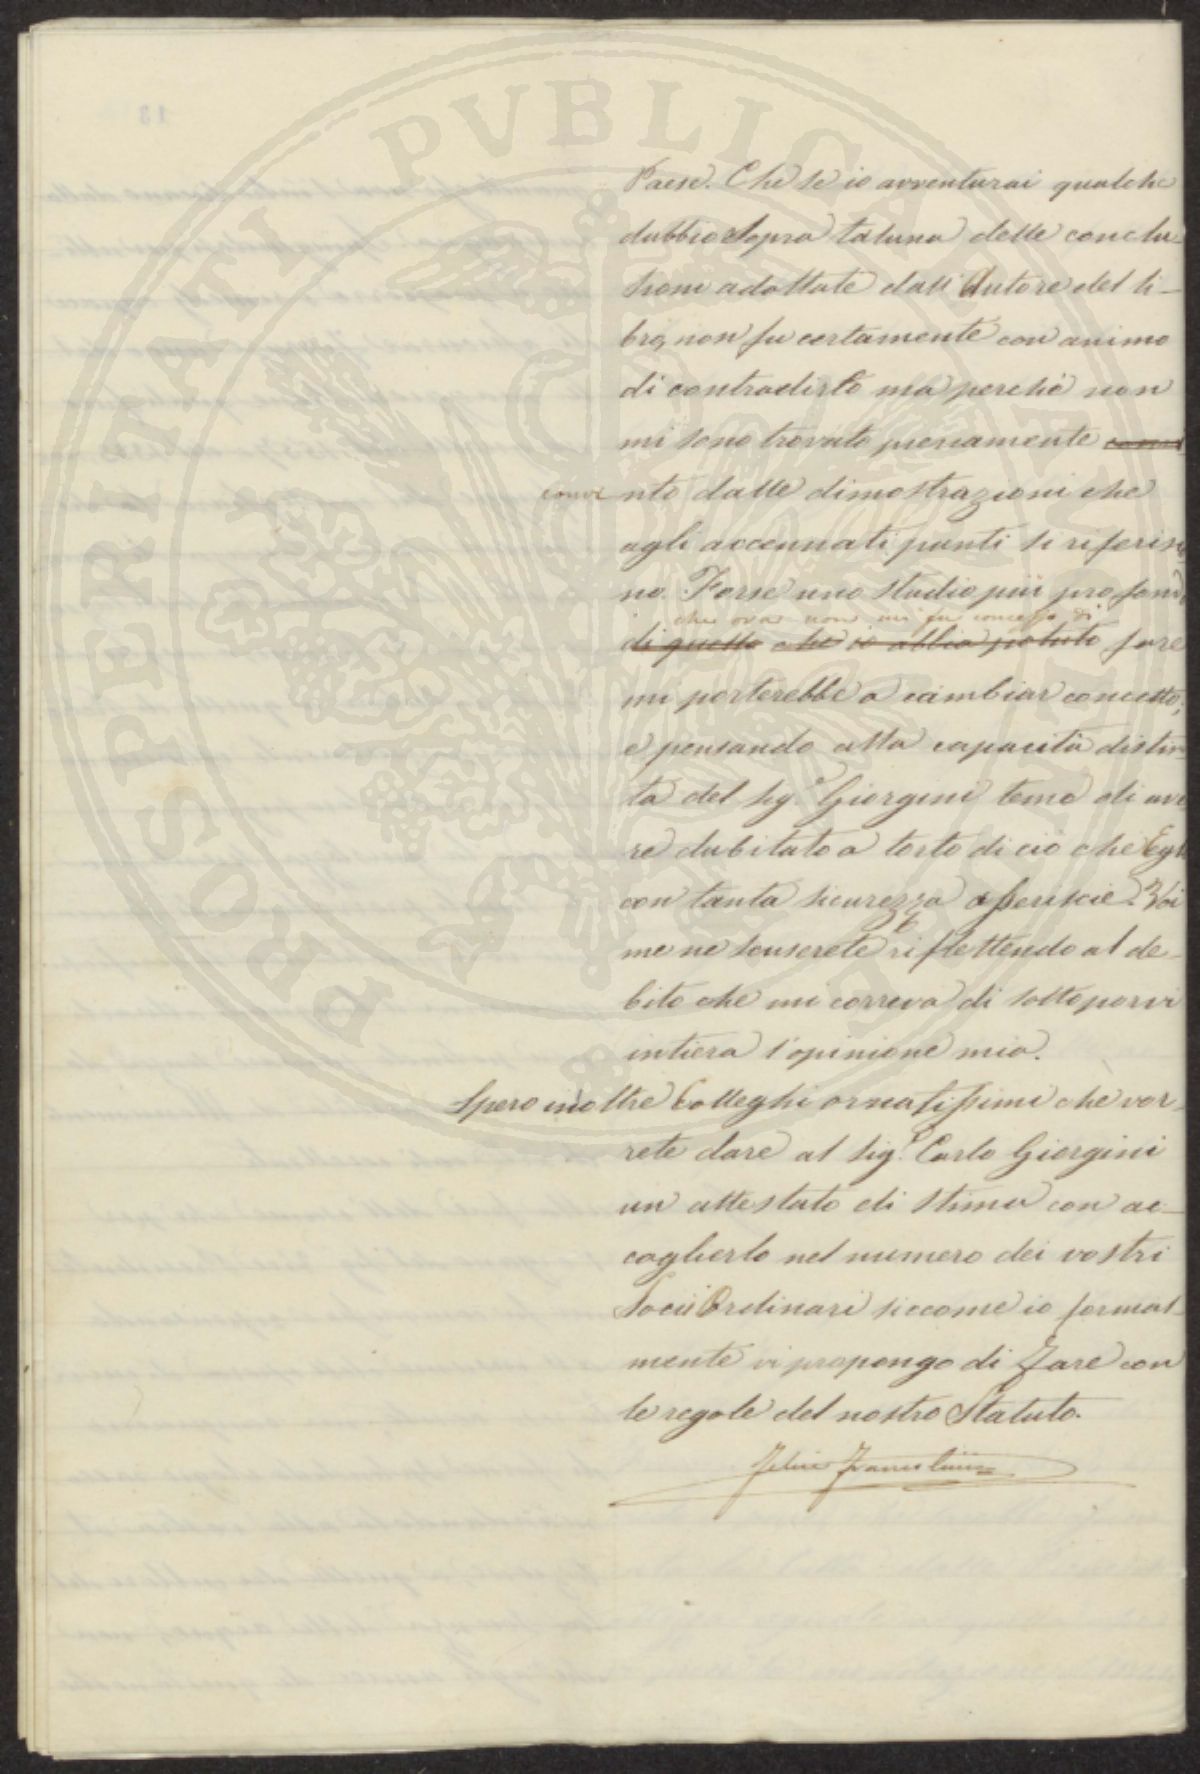 PROSPERITATI PVBLICAE AVGENDAE
Paese. Che se io avventurai qualche
dubbio sopra taluna delle conclu-
sioni adottate dall'Autore del li-
bro, non fu certamente con animo
di contradirlo ma perchè non
mi sono trovato pienamente
convinto dalle dimostrazioni che
agli accennati punti si riferisco
no. Forse uno studio più profondo
che ora non mi fu concesso di
di questo che io abbia potuto fare
mi porterebbe a cambiar concetto;
e pensando alla capacità distin-
ta del Sig.e Giorgini temo di ave
re dubitato a torto di ciò che Egli
con tanta sicurezza asserisce. Voi
me ne scuserete riflettendo al de-
bito che mi correva di sottoporvi
intiera l'opinione mia.
Spero inoltre Colleghi ornatissimi che vor-
rete dare al Sig.e Carlo Giorgini
un attestato di stima con ac-
coglierlo nel numero dei vostri
Socii Ordinari siccome io formal-
mente vi propongo di fare con
le regole del nostro Statuto.
Felice Francolini